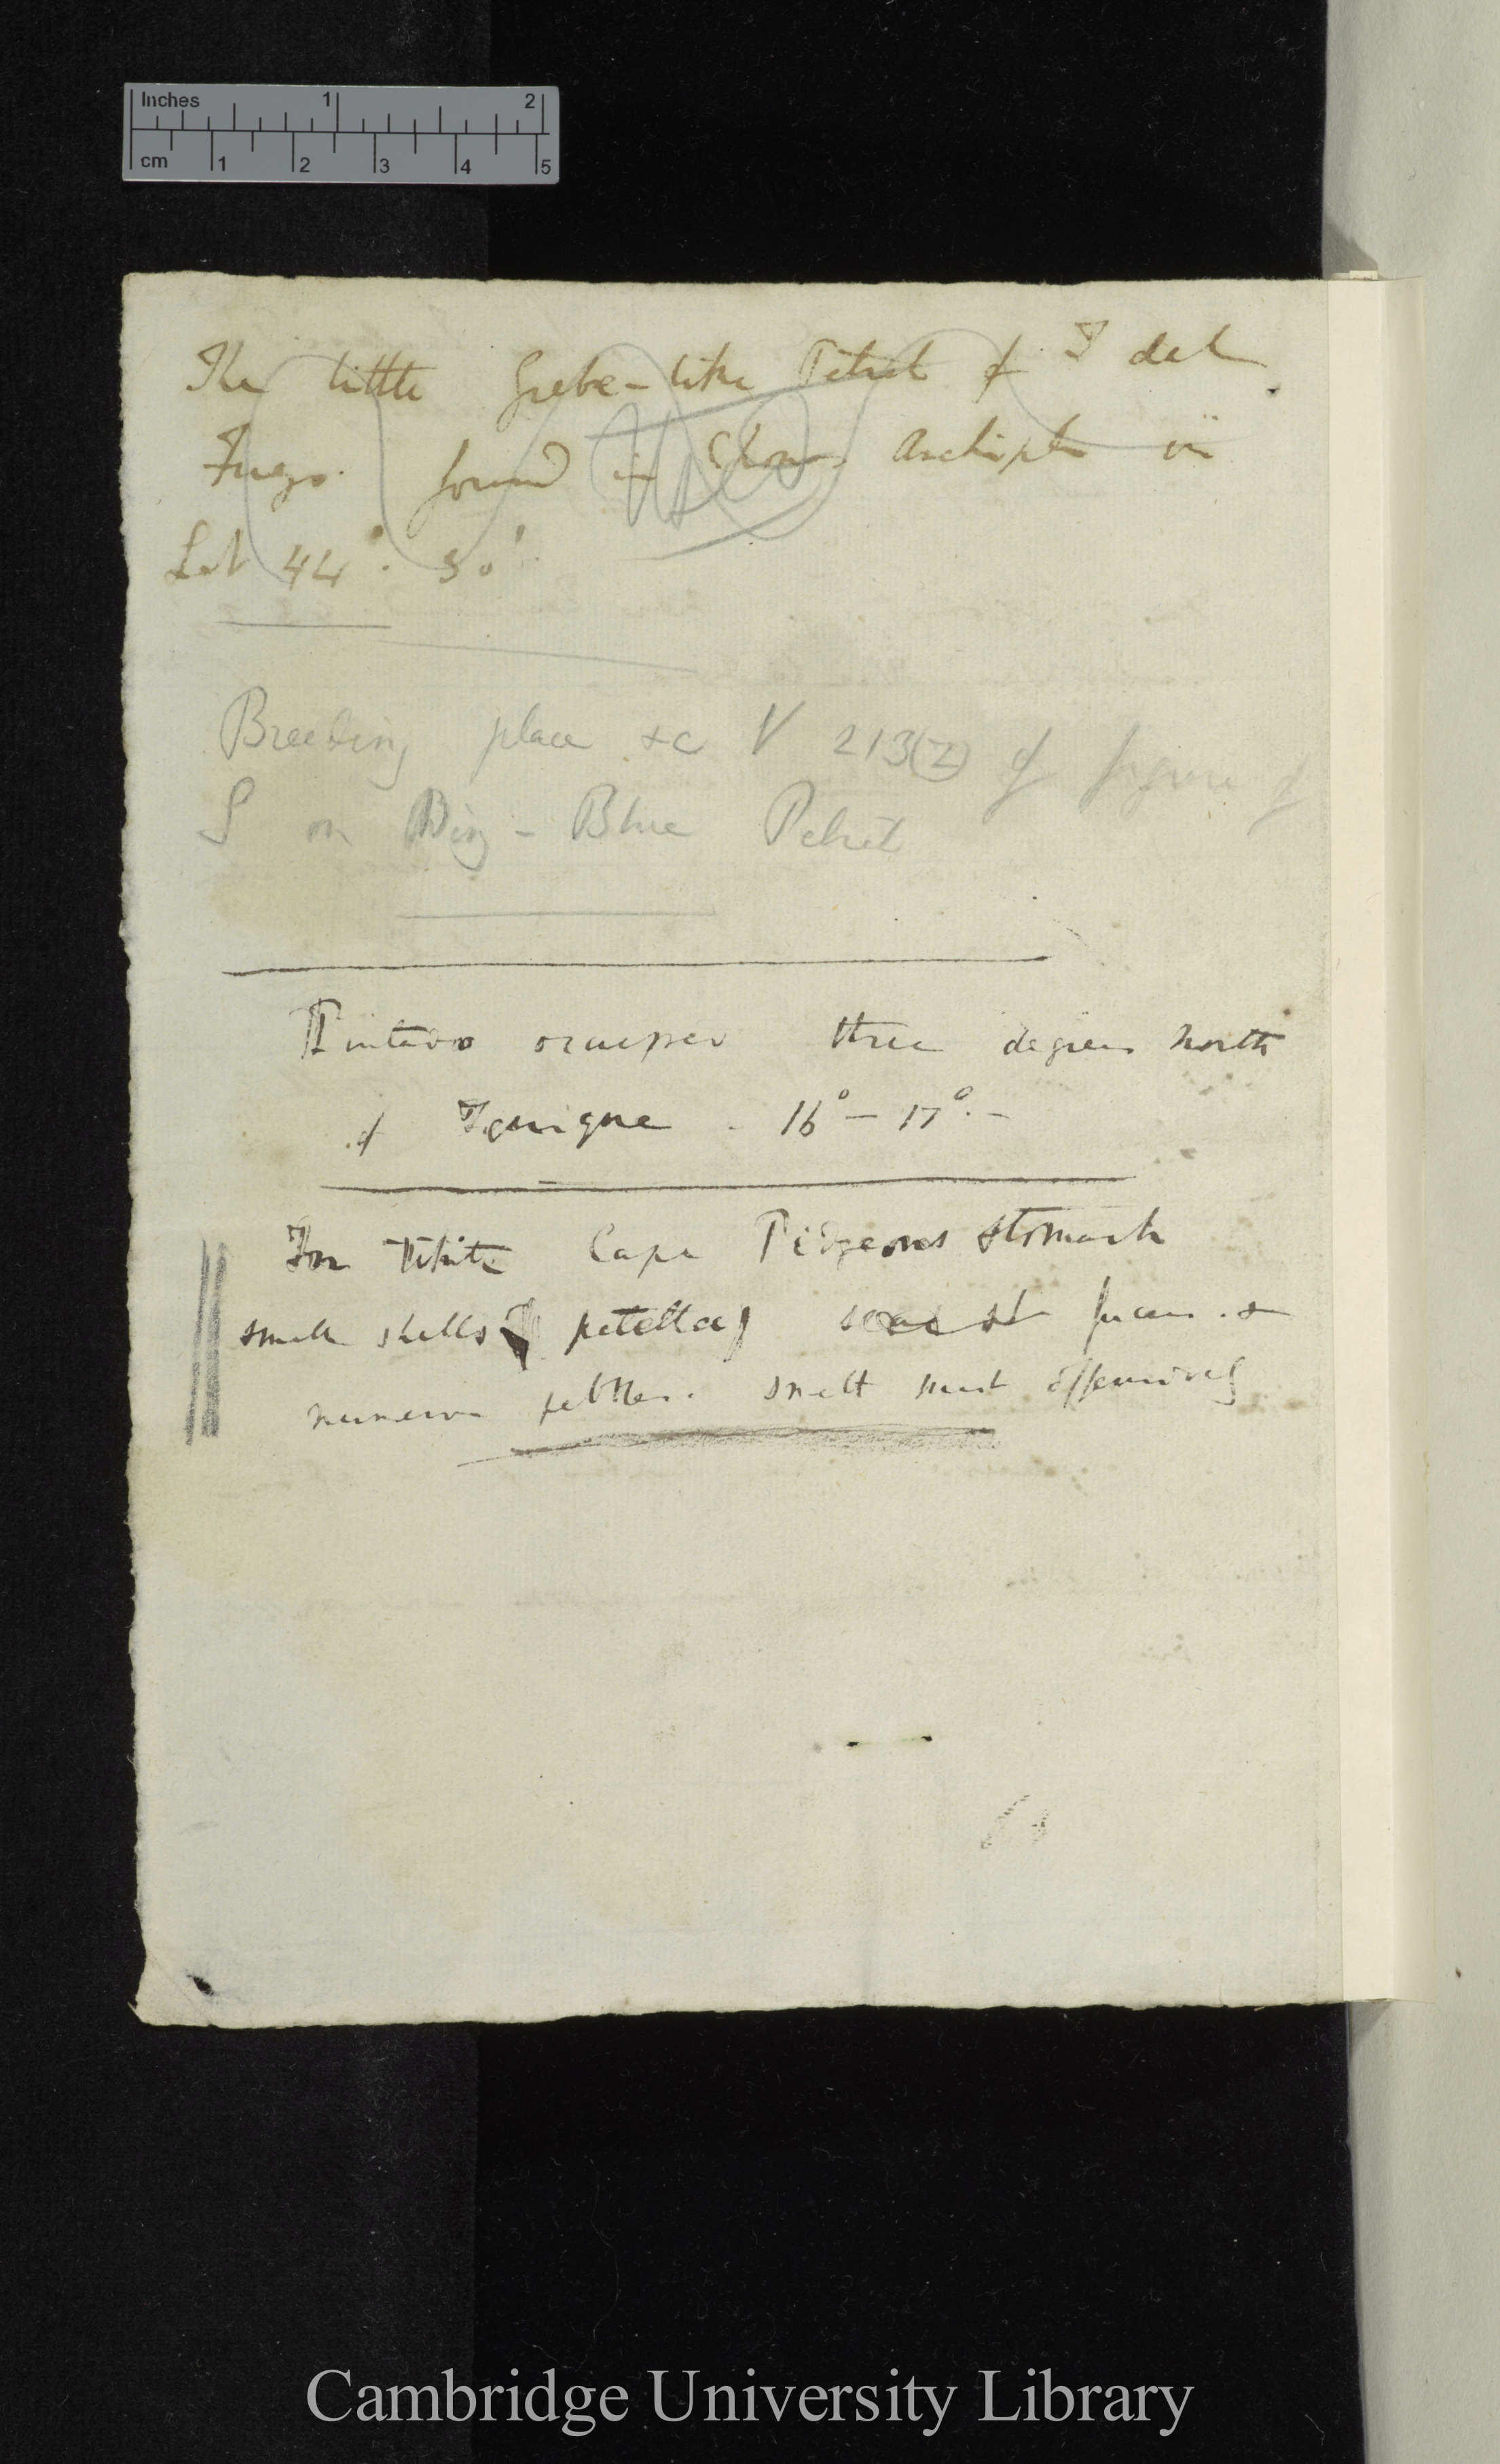 Inches 1 2
cm 1 2 3 4 5
The little Grebe-like Petrel of T del
Fuego. found in Chonos Archipel in
Lat 44°. 30'.
Breeding place &c V 213(Z) of figure of
S on Blue Petrel
Pintado three degrees north
of Iquique. 16°–17°.–
In White Cape Pidgeons stomach
small shells patella, &
numerous pebbles. smelt most offensively
Cambridge University Library